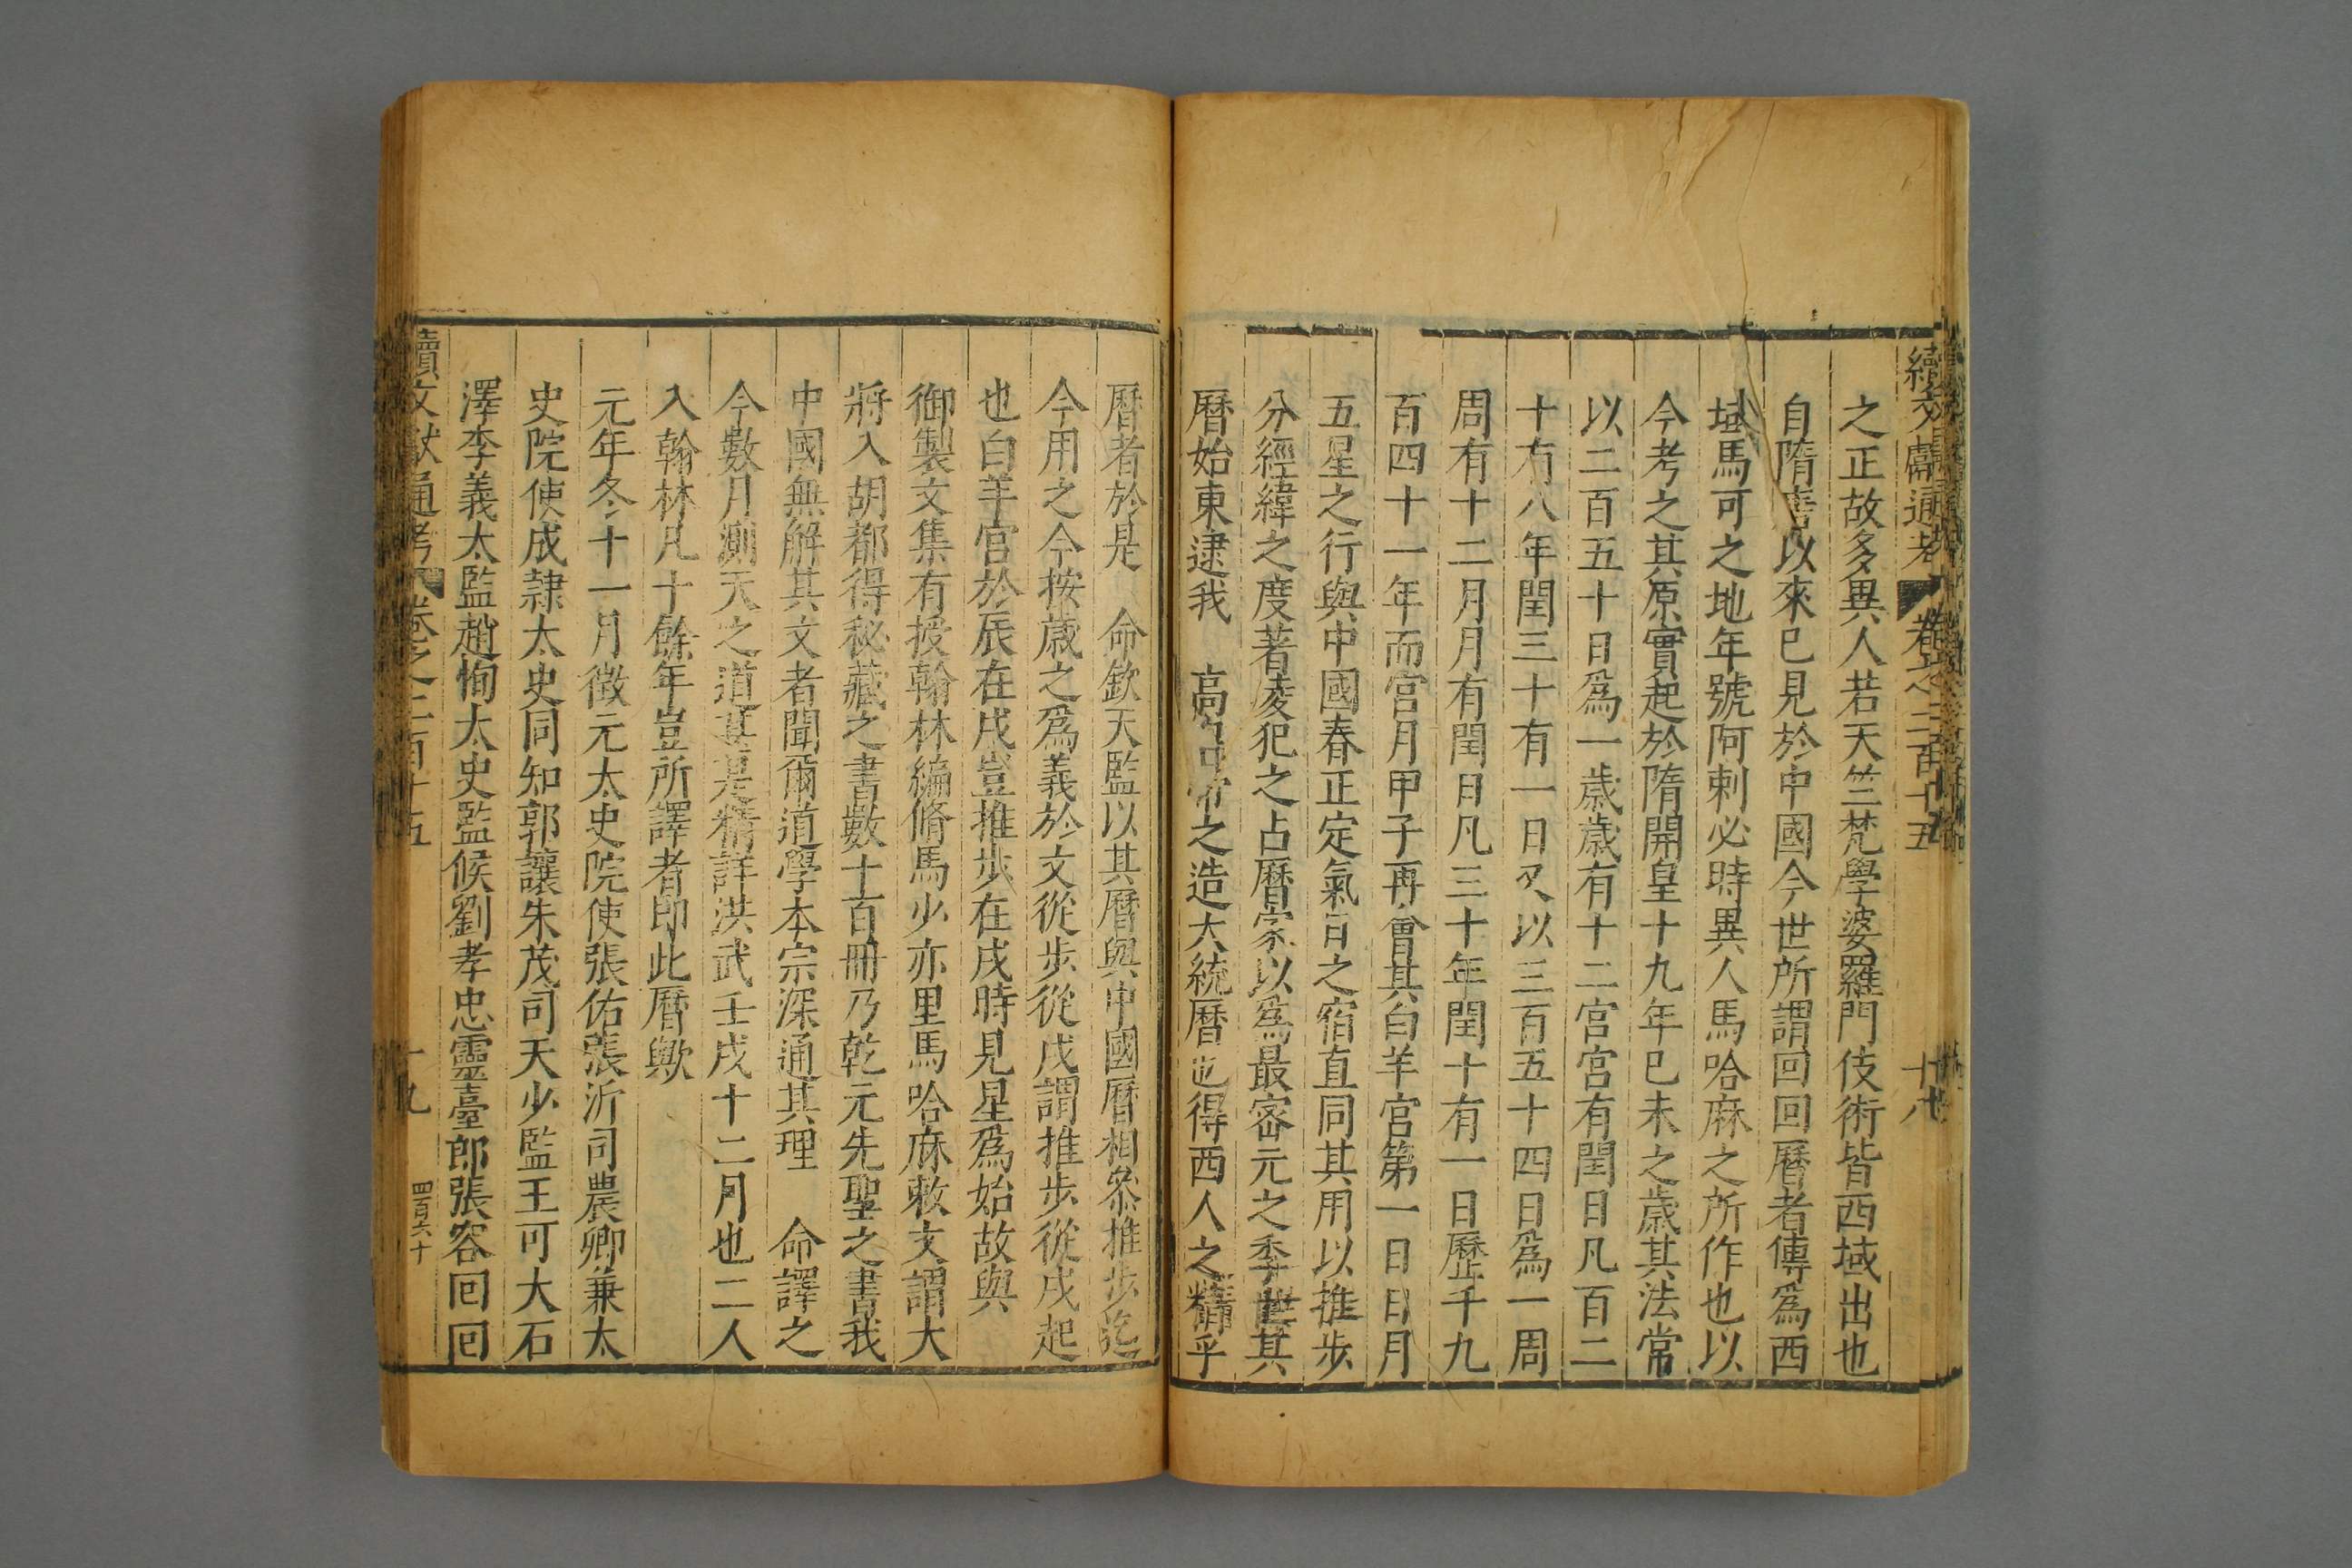 續文獻通考 卷之二百十五 十八
之正故多異人若天竺梵學婆羅門伎術皆西域出也
自隋唐以來已見於中國今世所謂回回曆者傳爲西
域馬可之地年號阿剌必時異人馬哈麻之所作也以
今考之其原實起於隋開皇十九年已未之歲其法常
以二百五十日爲一歲歲有十二宮宮有閏日凡百二
十有八年閏三十有一日又以三百五十四日爲一周
周有十二月月有閏日凡三十年閏十有一日歷千九
百四十一年而宮月甲子再會其白羊宮第一日日月
五星之行與中國春正定氣日之宿直同其用以推步
分經緯之度著凌犯之占曆家以爲最密元之季世其
曆始東逮我 高皇帝之造大統曆也得西人之精乎
曆者於是 命欽天監以其曆與中國曆相叅推步迄
今用之今按歲之爲義於文從步從戌謂推步從戌起
也白羊宮於辰在戌豈推步在戌時見星爲始故與
御製文集有授翰林編脩馬少亦里馬哈麻敕文謂大
將入胡都得秘藏之書數十百冊乃乾元先聖之書我
中國無解其文者聞爾道學本宗深通其理 命譯之
今數月測天之道甚是精詳洪武壬戌十二月也二人
入翰林凡十餘年豈所譯者即此曆歟
元年冬十一月徵元太史院使張佑張沂司農卿兼太
史院使成隷太史同知郭讓朱茂司天少監王可大石
澤李義太監趙恂太史監候劉孝忠靈臺郎張容回回
續文獻通考 卷之二百十五 十九 四百六十